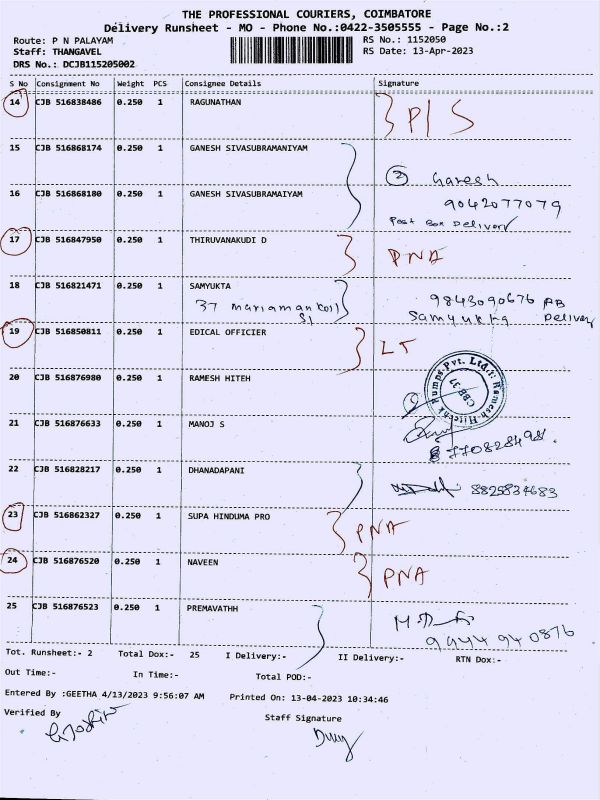 THE PROFESSIONAL COURIERS, COIMBATORE
Delivery Runsheet - MO - Phone No.:0422-3505555 - Page No.:2
Route: P N PALAYAM RS No.: 1152050
Staff: THANGAVEL RS Date: 13-Apr-2023
DRS No.: DCJB115205002
S No Consignment No Weight PCS Consignee Details Signature
14 CJB 516838486 0.250 1 RAGUNATHAN P/S
15 CJB 516868174 0.250 1 GANESH SIVASUBRAMANIYAM
② Ganesh
16 CJB 516868180 0.250 1 GANESH SIVASUBRAMAIYAM
9042077079
Post Box Delivery
17 CJB 516847950 0.250 1 THIRUVANAKUDI D PNA
18 CJB 516821471 0.250 1 SAMYUKTA
37 mariamankoil St
9843090676 PB
Samyukta Delivery
19 CJB 516850811 0.250 1 EDICAL OFFICIER LT
20 CJB 516876980 0.250 1 RAMESH HITEH
21 CJB 516876633 0.250 1 MANOJ S
22 CJB 516828217 0.250 1 DHANADAPANI
8825834683
23 CJB 516862327 0.250 1 SUPA HINDUMA PRO PNA
24 CJB 516876520 0.250 1 NAVEEN PNA
25 CJB 516876523 0.250 1 PREMAVATHH
9944940876
Tot. Runsheet:- 2 Total Dox:- 25 I Delivery:- II Delivery:- RTN Dox:-
Out Time:- In Time:- Total POD:-
Entered By :GEETHA 4/13/2023 9:56:07 AM Printed On: 13-04-2023 10:34:46
Verified By Staff Signature